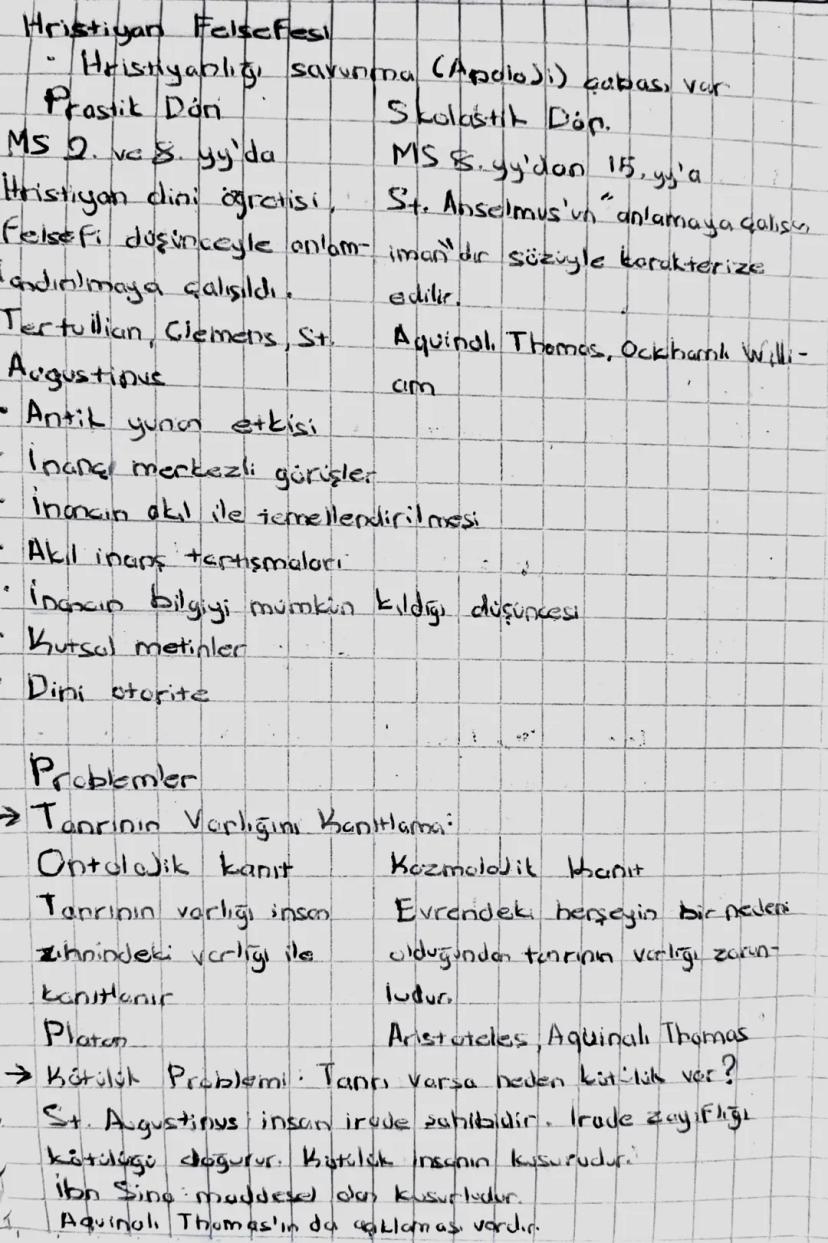 Hristiyan Felsefesi
• Hristiyanlığı savunma (Apoloji) çabası var
Prastik Dön
Skolastik Dön.
MS 2. ve 8. yy'da
MS 8. yy'dan 15. yy'a
Hristiyan dini öğretisi,
St. Anselmus'un "anlamaya çalışan
felsefi düşünceyle anlam-
iman"dır sözüyle karakterize
landırılmaya çalışıldı.
edilir.
Tertullian, Clemens, St.
Aquinalı Thomas, Ockhamlı Willi-
Augustinus
am
• Antik yunan etkisi
• İnanç merkezli görüşler
• İnancın akıl ile temellendirilmesi
• Akıl inanç tartışmaları
• İnancın bilgiyi mümkün kıldığı düşüncesi
• Kutsal metinler
• Dini otorite
Problemler
→ Tanrının Varlığını Kanıtlama:
Ontolojik kanıt
Kozmolojik kanıt
Tanrının varlığı insan
Evrendeki herşeyin bir nedeni
zihnindeki varlığı ile
olduğundan tanrının varlığı zorun-
kanıtlanır
ludur.
Platon
Aristoteles, Aquinalı Thomas
→ Kötülük Problemi: Tanrı varsa neden kötülük var?
St. Augustinus: insan irade sahibidir. İrade zayıflığı
kötülüğü doğurur. Kötülük insanın kusurudur.
İbn Sina: maddesel olan kusurludur.
Aquinalı Thomas'ın da açıklaması vardır.